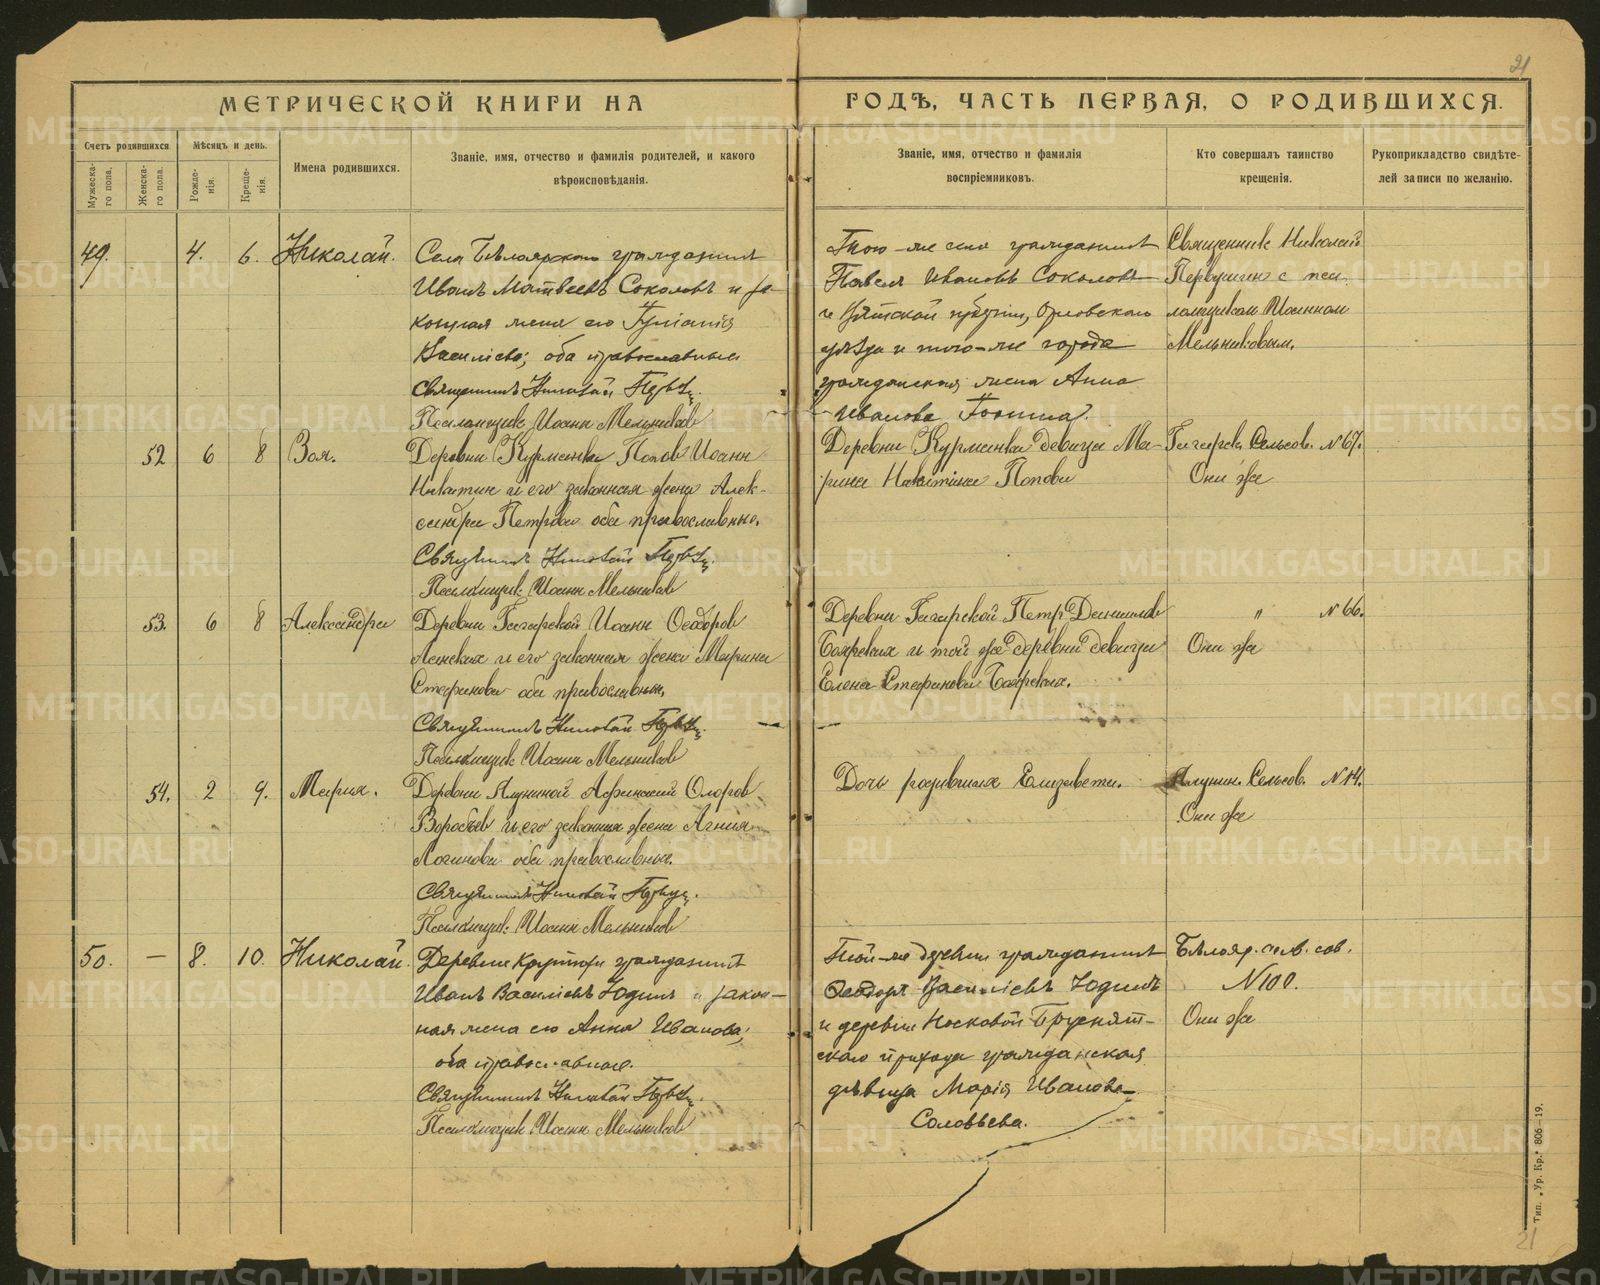 21
МЕТРИЧЕСКОЙ КНИГИ НА
ГОДЪ, ЧАСТЬ ПЕРВАЯ, О РОДИВШИХСЯ.
Счетъ родившихся
Мѣсяцъ и день.
Имена родившихся.
Званіе, имя, отчество и фамилія родителей, и какого
вѣроисповѣданія.
Мужеска-
го пола.
Женска-
го пола.
Рожде-
нія.
Креще-
нія.
Званіе, имя, отчество и фамилія
воспріемниковъ.
Кто совершалъ таинство
крещенія.
Рукоприкладство свидѣте-
лей записи по желанію.
49. 4. 6. Николай.
Села Бѣлоярскаго гражданинъ
Иванъ Матвѣевъ Соколовъ и за-
конная жена его
Васильева; оба православные
Священникъ Николай
Псаломщик Иоанн Мельников
Того-же села гражданинъ
Павелъ Ивановъ Соколовъ
и Вятской губерніи, Орловскаго
уѣзда и того-же города
гражданская жена Анна
Иванова
Священник Николай
с пса
ломщиком Иоанном
Мельниковым.
52 6 8 Зоя.
Деревни Курманки Попов Иоанн
Никитин и его законная жена Алек-
сандра Петрова оба православные.
Священникъ Николай
Псаломщик Иоанн Мельников
Деревни Курманки девица Ма-
рина Никитина Попова
Гагарск. Сельсов. № 67.
Они же
53. 6 8 Александра
Деревни Гагарской Иоанн Феодоров
и его законная жена Марина
Стефанова оба православные.
Священникъ Николай
Псаломщик Иоанн Мельников
Деревни Гагарской Петр Данилов
Боярских и той же деревни девица
Елена Стефанова Боярских.
" № 66.
Они же
54. 2 9. Мария.
Деревни
Воробьев и его законная жена Агния
Логинова оба православные.
Священникъ Николай
Псаломщик Иоанн Мельников
Дочь родившия Елизавета.
Сельсов. № 14.
Они же
50. — 8. 10. Николай.
Деревни гражданинъ
Иванъ Васильевъ Юдинъ и закон-
ная жена его Анна Иванова,
оба православные.
Священникъ Николай
Псаломщик Иоанн Мельников
Той-же деревни гражданинъ
Феодоръ Васильевъ Юдинъ
и деревни Носковой Брусянт-
скаго прихода гражданская
дѣвица Марія Иванова
Соловьева.
Бѣлояр. сов.
№ 100.
Они же
Тип. „Ур. Кр." 806—19.
21
METRIKI.GASO-URAL.RU